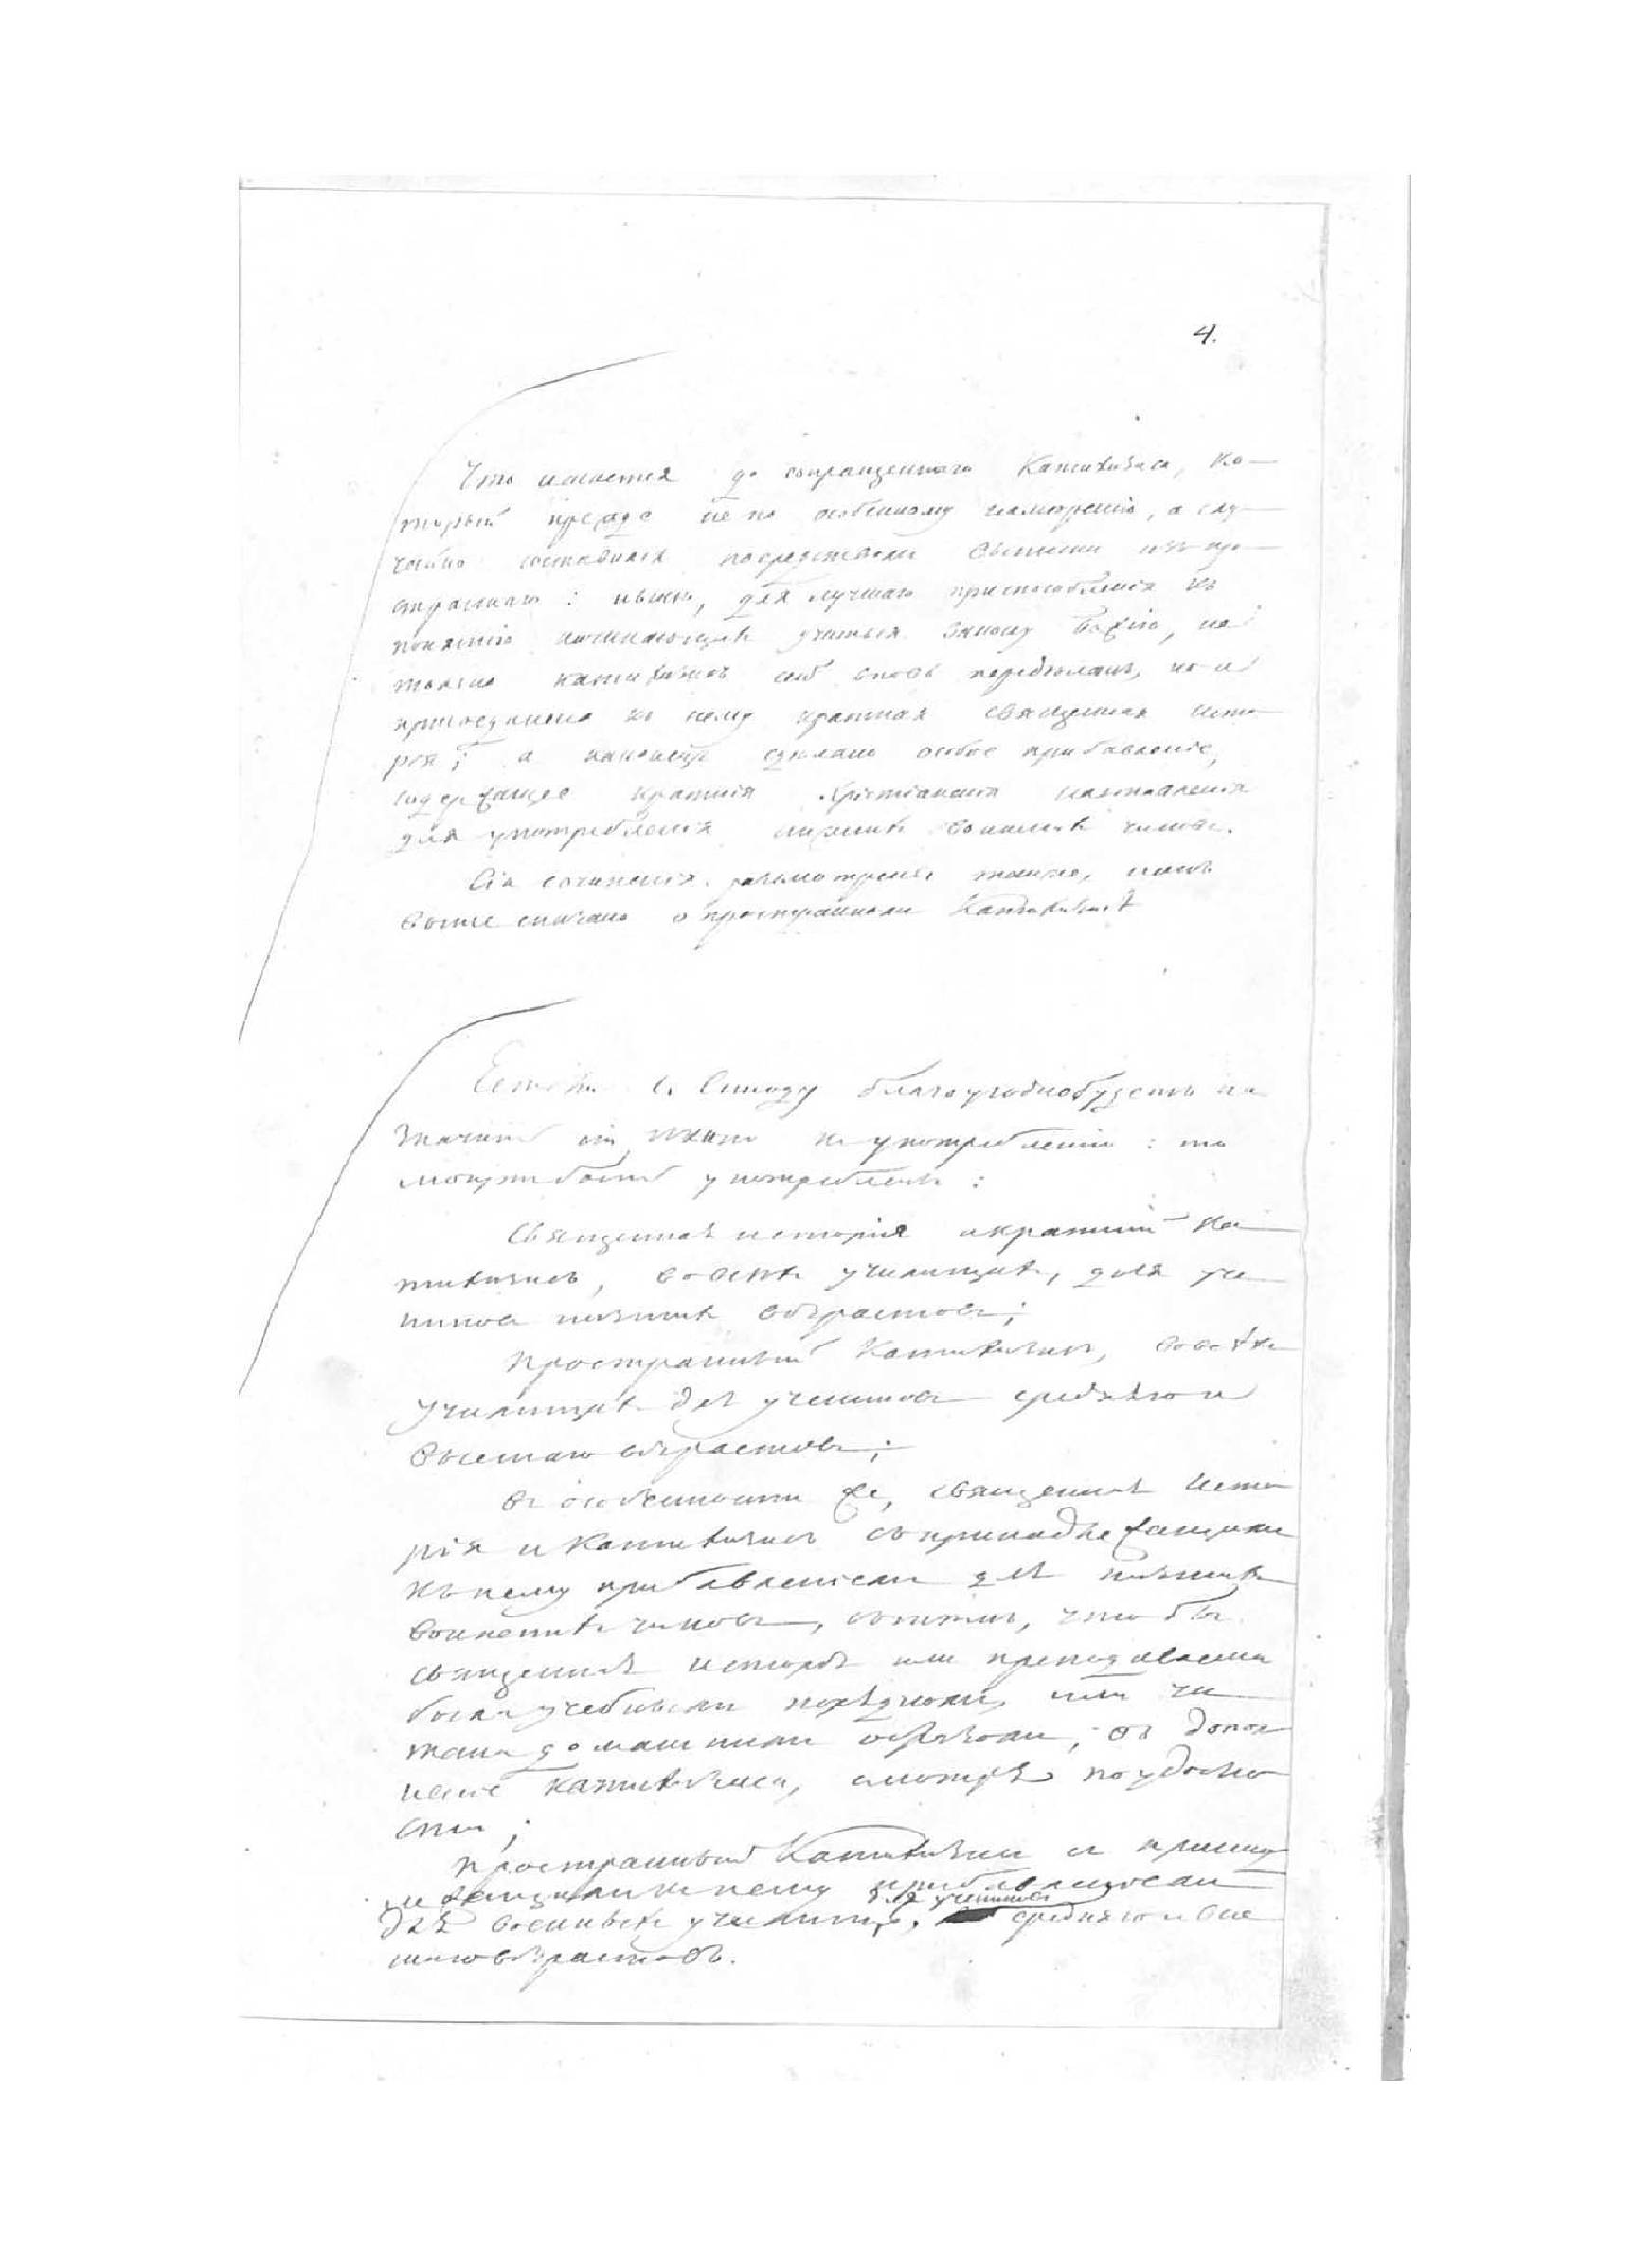 4.
Что касается до сокращеннаго Катихизиса, ко-
торый прежде не по особенному намѣренію, а слу-
чайно составился посредствомъ выписки изъ про-
страннаго: нынѣ, для лучшаго приспособленія къ
понятію начинающихъ учиться Закону Божію, не
только катихизисъ сей вновь передѣланъ, но и
присоединена къ нему краткая священная исто
рія; а наконецъ сдѣлано особое прибавленіе,
содержащее краткія Христіанскія наставленія
для употребленія нижнихъ воинскихъ чиновъ.
Сіи сочиненія разсмотрены также, какъ
выше сказано о пространномъ Катихизисѣ
С. Синоду благоугодно будетъ на
значить къ употребленію: то
могутъ быть употреблены:
Священная исторія и краткій Ка
тихизисъ, во всѣхъ училищахъ, для уче
никовъ низшихъ возрастовъ;
Пространный Катихизисъ, во всѣхъ
училищахъ для учениковъ средняго и
высшаго возрастовъ;
Въ особенности же, священная исто
рія и Катихизисъ съ принадлежащимъ
къ нему прибавленіемъ для нижнихъ
воинскихъ чиновъ, съ тѣмъ, что бы
священная исторія или преподаваема
была учебнымъ порядкомъ, или чи
тана домашнимъ образомъ, въ допол
неніе катихизиса, смотря по удобно
сти;
Пространный Катихизисъ съ принад
лежащимъ къ нему прибавленіемъ
для учениковъ
для военныхъ училищъ, средняго и выс
шаго возрастовъ.